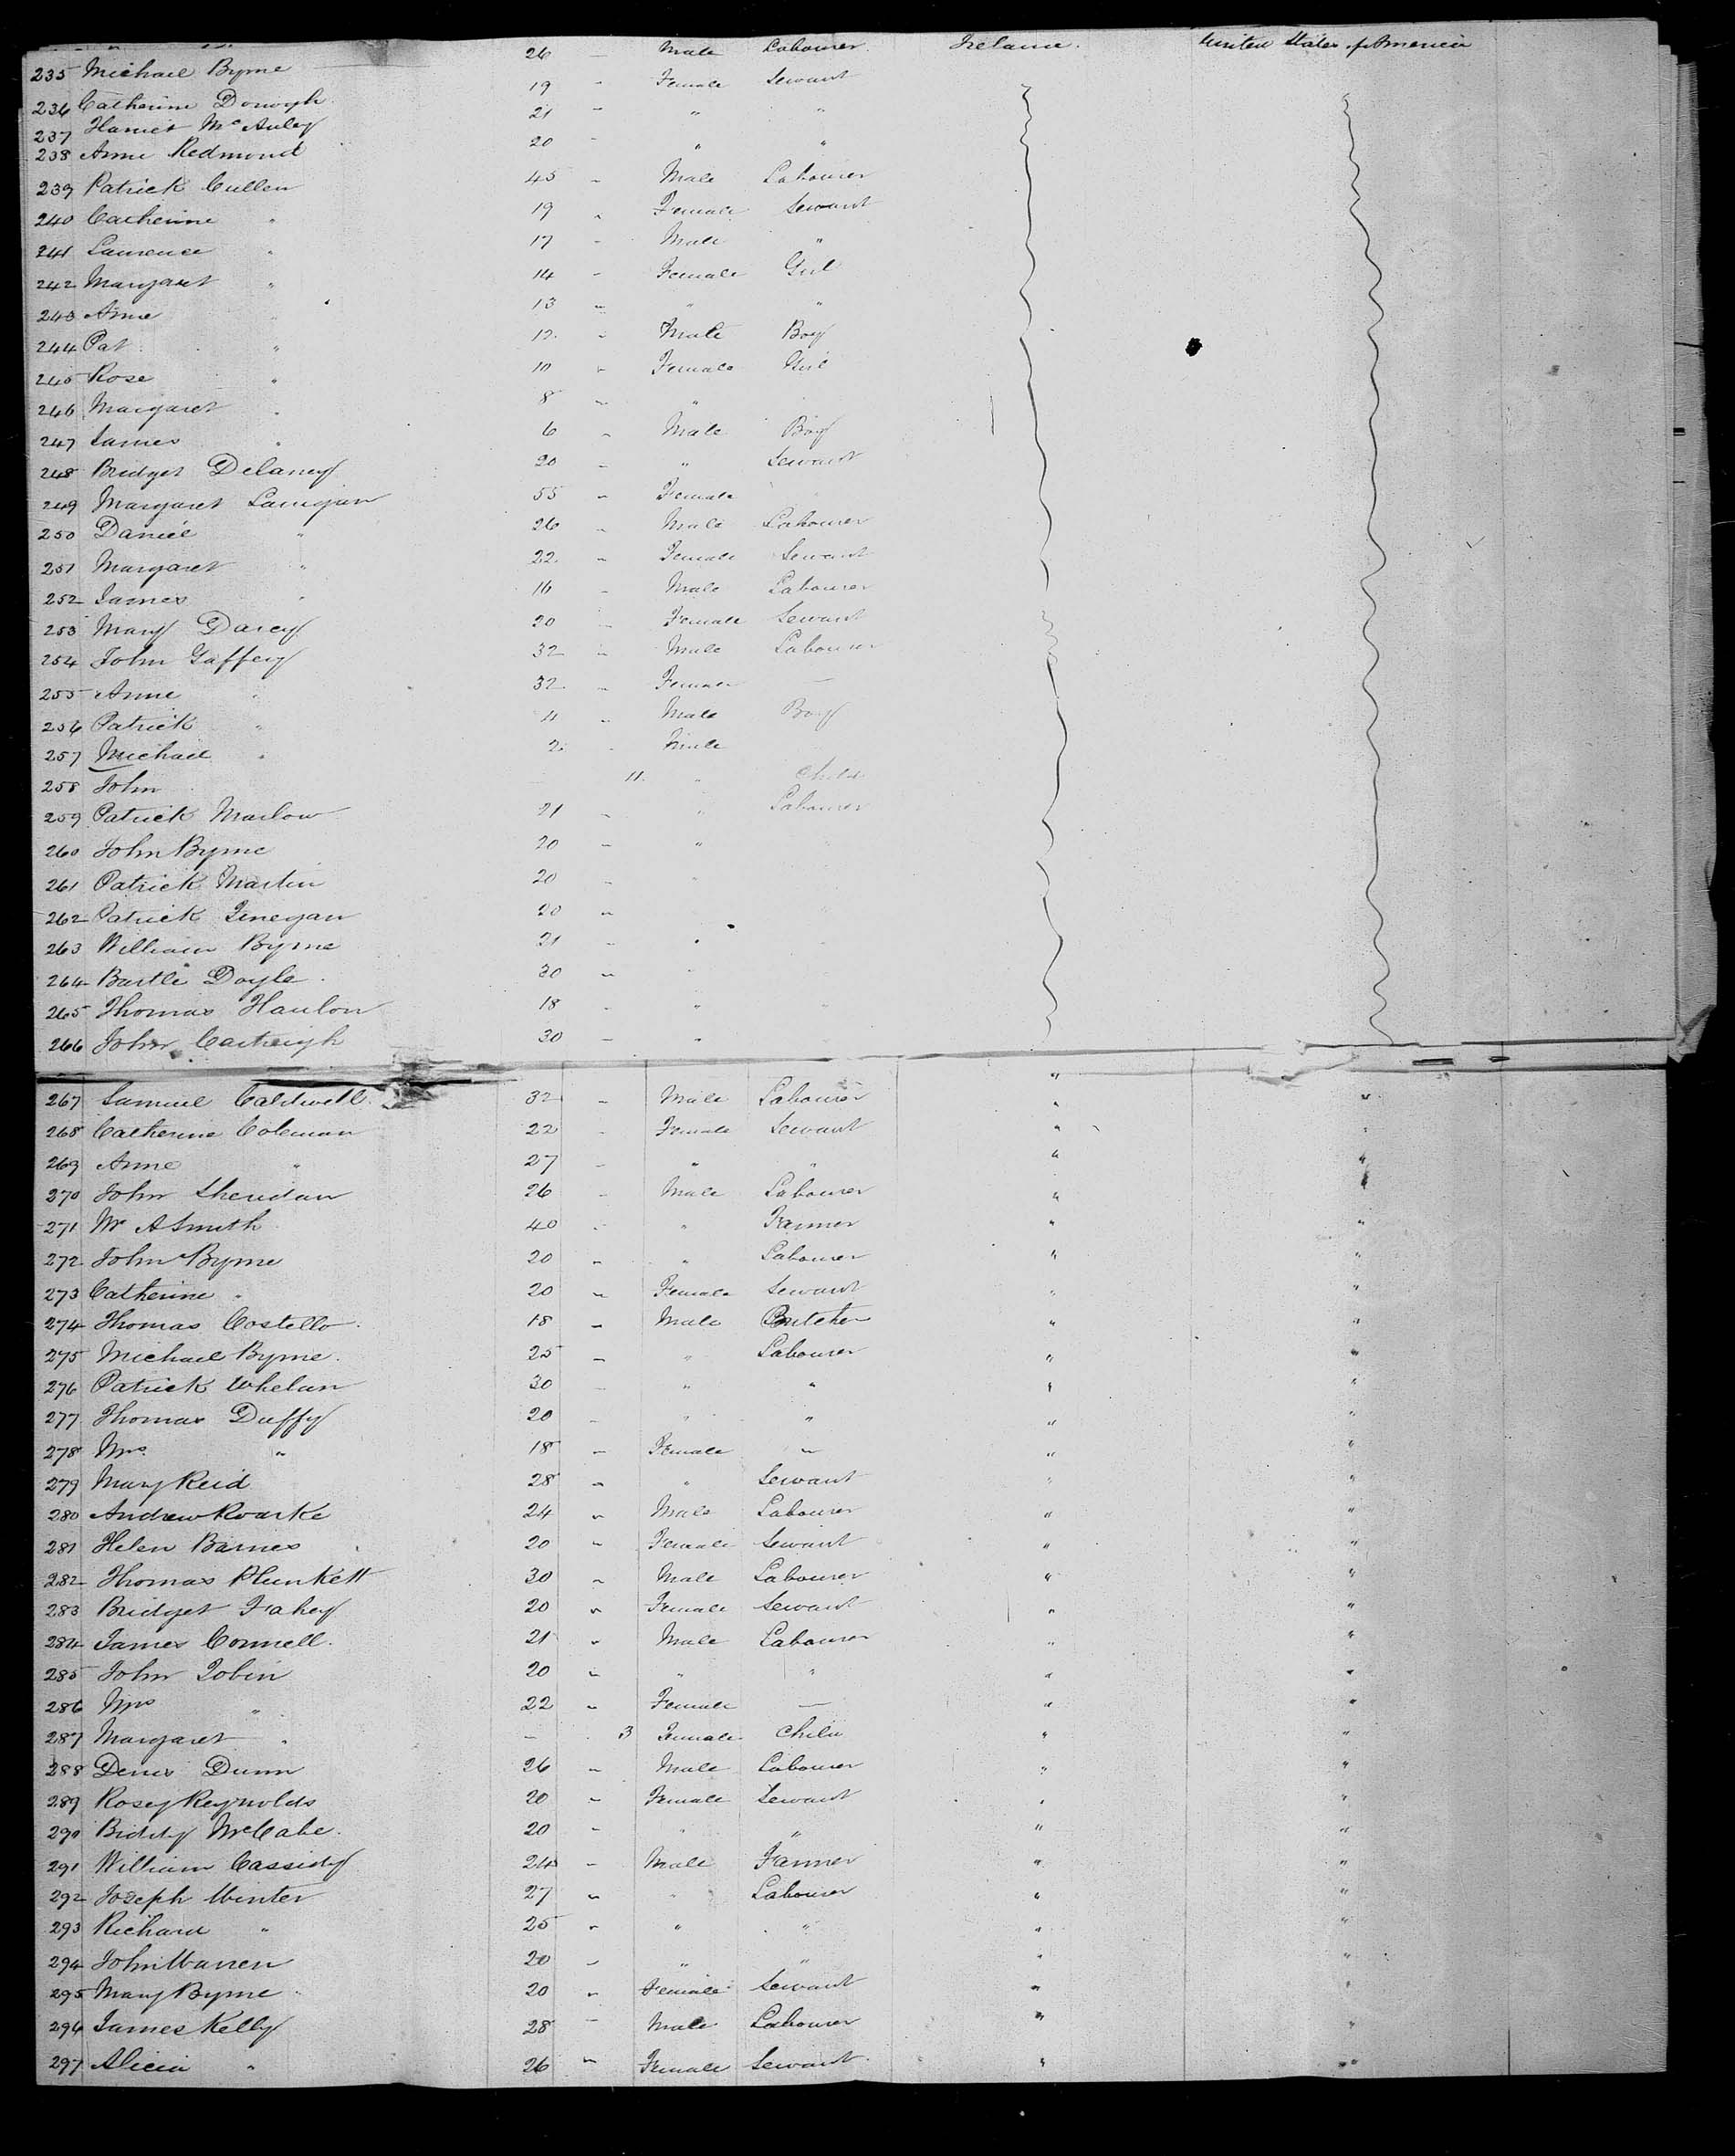 235 Michael Byrne 26 - Male Labourer Ireland. United States of America
236 Catherine 19 - Female Servant
237 Harriet McAuley 21 - " "
238 Anne Redmond 20 - " "
239 Patrick Cullen 45 - Male Labourer
240 Catherine " 19 - Female Servant
241 Laurence " 17 - Male "
242 Margaret " 14 - Female Girl
243 Anne " 13 - " "
244 Pat " 12 - Male Boy
245 Rose " 10 - Female Girl
246 Margaret " 8 - "
247 James " 6 - Male Boy
248 Bridget Delaney 20 - " Servant
249 Margaret Lanigan 55 - Female
250 Daniel " 26 - Male Labourer
251 Margaret " 22 - Female Servant
252 James " 16 - Male Labourer
253 Mary Darcy 20 - Female Servant
254 John Gaffery 32 - Male Labourer
255 Anne " 32 - Female -
256 Patrick " 4 - Male Boy
257 Michael " 2 - Male
258 John 11 " Child
259 Patrick Marlow 21 - " Labourer
260 John Byrne 20 - "
261 Patrick Martin 20 - "
262 Patrick Finegan 20 -
263 William Byrne 21 - "
264 Bartle Doyle 30 - "
265 Thomas Hanlon 18 - "
266 John 30 - "
267 Samuel Caldwell 32 - Male Labourer " "
268 Catherine Coleman 22 - Female Servant " "
269 Anne " 27 - " " " "
270 John Sheridan 26 - Male Labourer " "
271 Wm A Smith 40 - " Farmer " "
272 John Byrne 20 - " Labourer " "
273 Catherine " 20 - Female Servant " "
274 Thomas Costello 18 - Male Butcher " "
275 Michael Byrne 25 - " Labourer " "
276 Patrick Whelan 30 - " " " "
277 Thomas Duffy 20 - " " " "
278 Mrs " 18 - Female - " "
279 Mary Reid 28 - " Servant " "
280 Andrew Rourke 24 - Male Labourer " "
281 Helen Barnes 20 - Female Servant " "
282 Thomas Plunkett 30 - Male Labourer " "
283 Bridget Fahey 20 - Female Servant " "
284 James Connell 21 - Male Labourer " "
285 John Tobin 20 - " " " "
286 Mrs " 22 - Female - " "
287 Margaret " - 3 Female Child " "
288 Denis Dunn 26 - Male Labourer " "
289 Rosey Reynolds 20 - Female Servant " "
290 Biddy McCabe 20 - " " " "
291 William Cassidy 24 - Male Farmer " "
292 Joseph Winter 27 - " Labourer " "
293 Richard " 25 - " " " "
294 John Warren 20 - " " " "
295 Mary Byrne 20 - Female Servant " "
296 James Kelly 28 - Male Labourer " "
297 Alicia " 26 - Female Servant " "